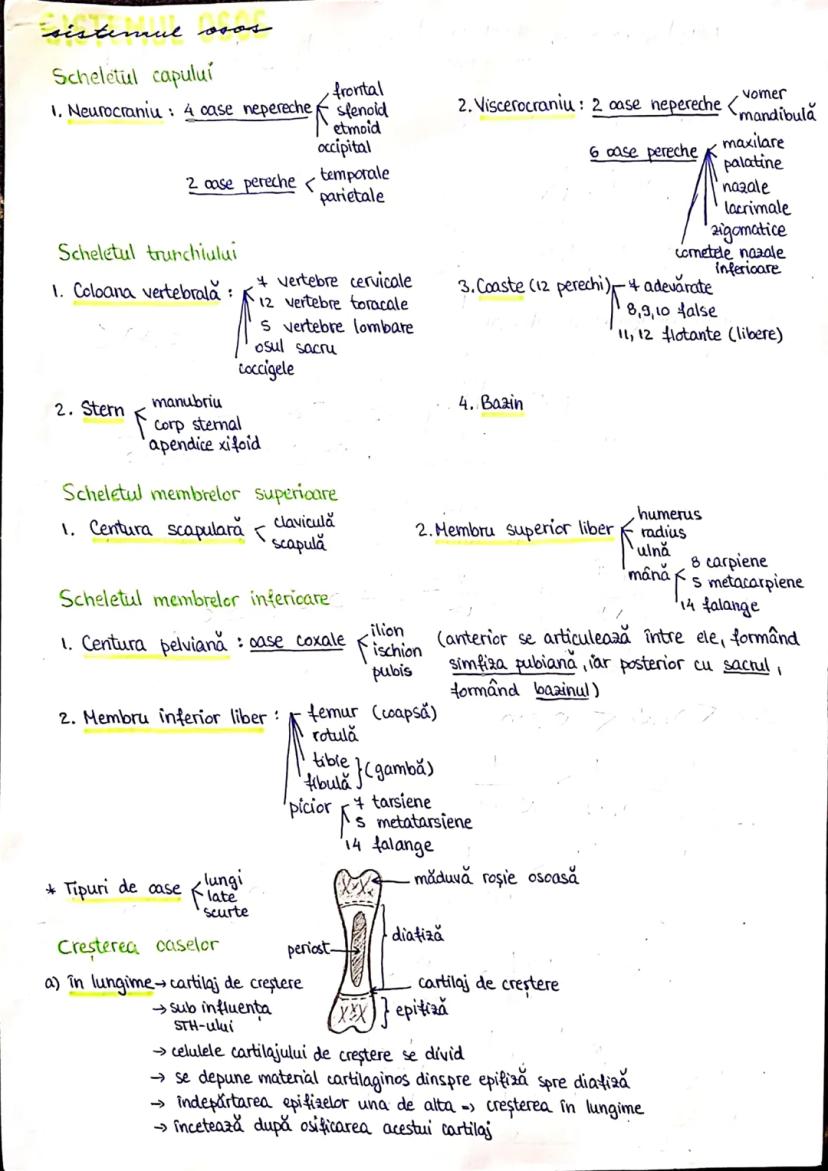 SISTEMUL OSOS
sistemul osos
Scheletul capului
1. Neurocraniu : 4 oase nepereche
frontal
sfenoid
etmoid
occipital
2 oase pereche
temporale
parietale
2. Viscerocraniu : 2 oase nepereche
vomer
mandibulă
6 oase pereche
maxilare
palatine
nazale
lacrimale
zigomatice
cornetele nazale
inferioare
Scheletul trunchiului
1. Coloana vertebrală :
7 vertebre cervicale
12 vertebre toracale
5 vertebre lombare
osul sacru
coccigele
3. Coaste (12 perechi)
7 adevărate
8,9,10 false
11, 12 flotante (libere)
2. Stern
manubriu
corp sternal
apendice xifoid
4. Bazin
Scheletul membrelor superioare
1. Centura scapulară
claviculă
scapulă
2. Membru superior liber
humerus
radius
ulnă
mână
8 carpiene
5 metacarpiene
14 falange
Scheletul membrelor inferioare
1. Centura pelviană : oase coxale
ilion
ischion
pubis
(anterior se articulează între ele, formând
simfiza pubiană, iar posterior cu sacrul,
formând bazinul)
2. Membru inferior liber :
femur (coapsă)
rotulă
tibie
fibulă
} (gambă)
picior
7 tarsiene
5 metatarsiene
14 falange
* Tipuri de oase
lungi
late
scurte
măduvă roșie osoasă
diafiză
periost
cartilaj de creștere
epifiză
Creșterea oaselor
a) în lungime → cartilaj de creștere
→ sub influența
STH-ului
→ celulele cartilajului de creștere se divid
→ se depune material cartilaginos dinspre epifiză spre diafiză
→ îndepărtarea epifizelor una de alta => creșterea în lungime
→ încetează după osificarea acestui cartilaj